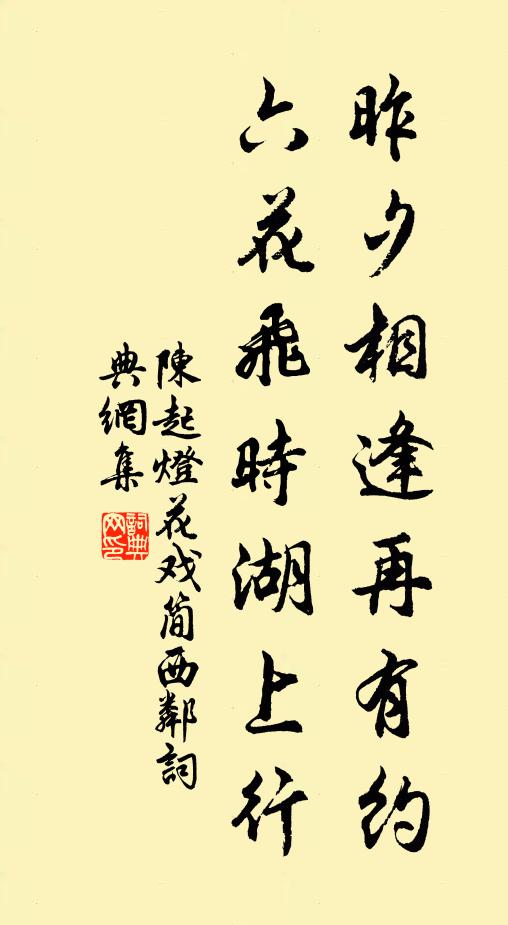 昨夕相逢再有约
六花飛時湖上行
陳起燈花戏简西鄰詞
典網集
詞典
网印